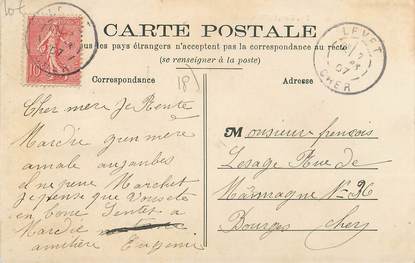 CARTE POSTALE
us les pays étrangers n'acceptent pas la correspondance au recto
(se renseigner à la poste)
Correspondance
Adresse
LEVET
CHER
07
10
18)
Cher mere Je Rente
Mardie quen mere
amale auganbes
il ne peue Marcher
Je pense que Vous ete
en bone Sentet a
Mardie
amitière Eugenie
Monsieur frensois
Lesage Rue de
Marmagne N° 26
Bourges Cher